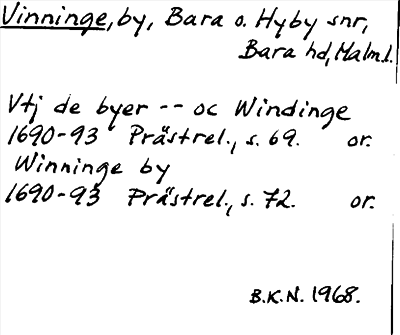 Vinninge, by, Bara o. Hyby snr,
Bara hd, Malm.l.
Vtj de byer -- oc Windinge
1690-93 Prästrel., s. 69. or.
Winninge by
1690-93 Prästrel., s. 72. or.
B.K.N. 1968.